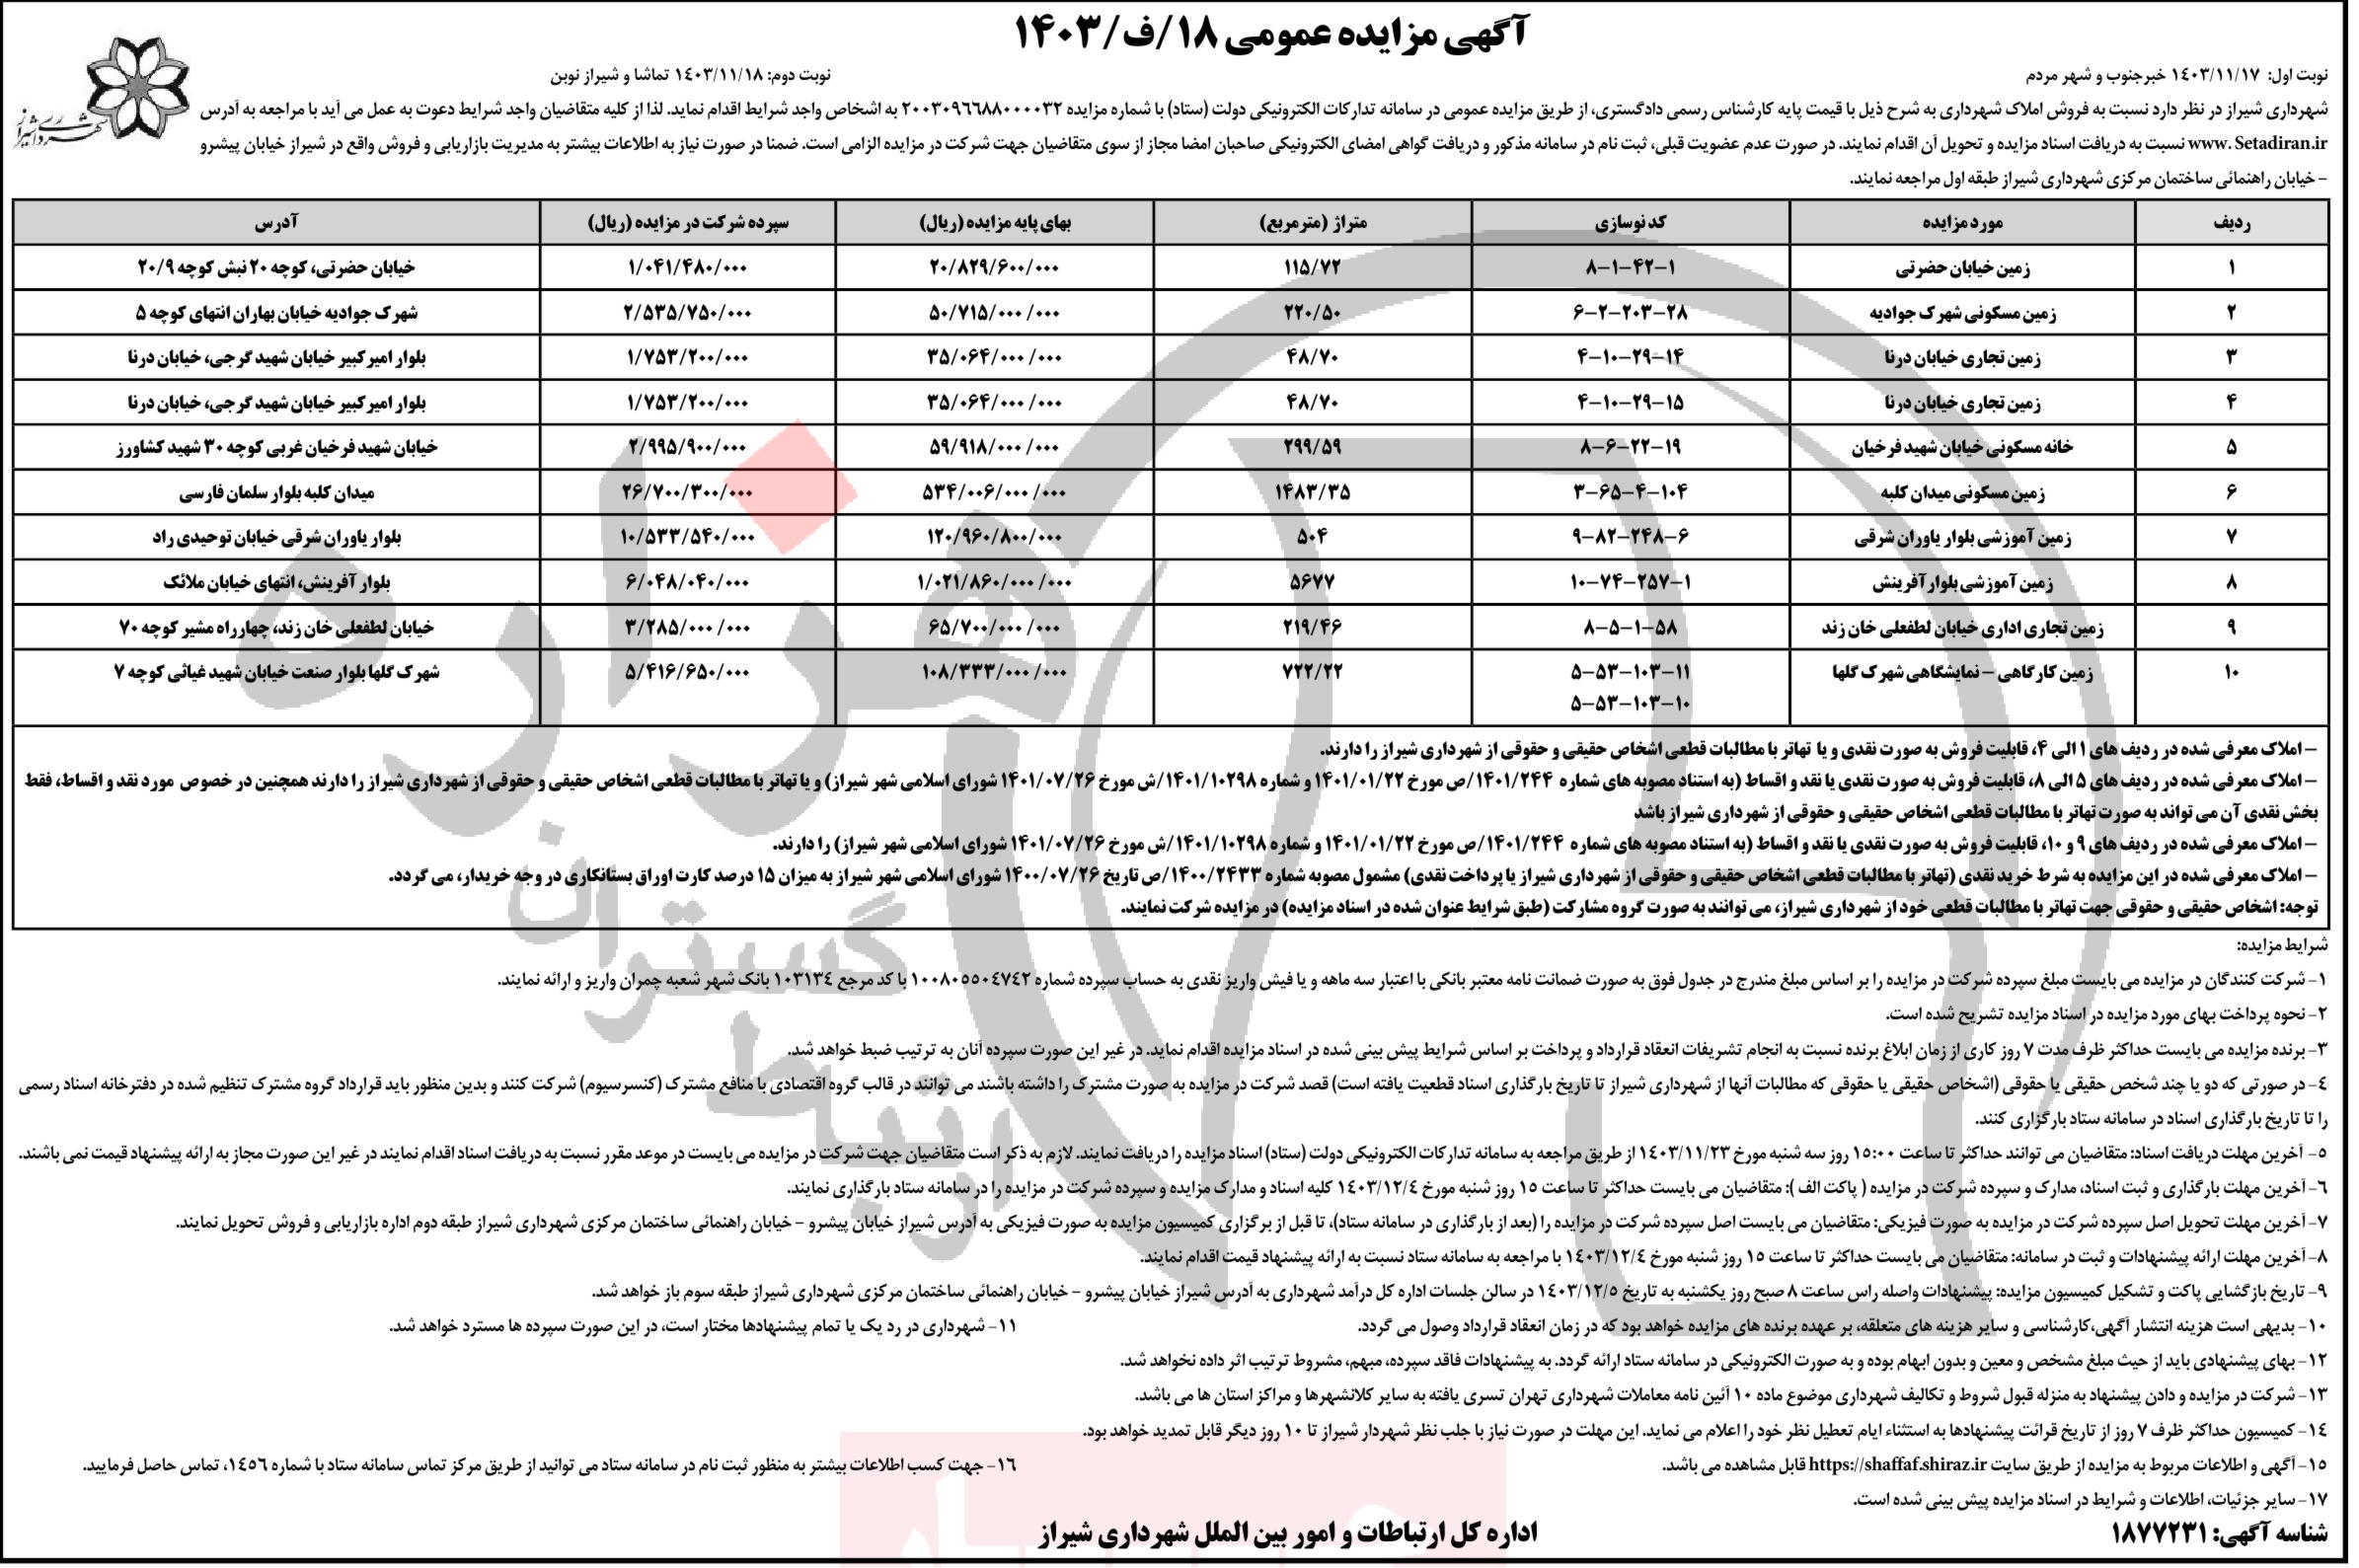 آگهی مزایده عمومی ۱۸/ف/۱۴۰۳
شهرداری شیراز
نوبت اول: ۱۴۰۳/۱۱/۱۷ خبرجنوب و شهر مردم
نوبت دوم: ۱۴۰۳/۱۱/۱۸ تماشا و شیراز نوین
شهرداری شیراز در نظر دارد نسبت به فروش املاک شهرداری به شرح ذیل با قیمت پایه کارشناس رسمی دادگستری، از طریق مزایده عمومی در سامانه تدارکات الکترونیکی دولت (ستاد) با شماره مزایده ۲۰۰۳۰۹۶۶۸۸۰۰۰۰۳۲ به اشخاص واجد شرایط اقدام نماید. لذا از کلیه متقاضیان واجد شرایط دعوت به عمل می آید با مراجعه به آدرس
www.Setadiran.ir نسبت به دریافت اسناد مزایده و تحویل آن اقدام نمایند. در صورت عدم عضویت قبلی، ثبت نام در سامانه مذکور و دریافت گواهی امضای الکترونیکی صاحبان امضا مجاز از سوی متقاضیان جهت شرکت در مزایده الزامی است. ضمنا در صورت نیاز به اطلاعات بیشتر به مدیریت بازاریابی و فروش واقع در شیراز خیابان پیشرو
- خیابان راهنمائی ساختمان مرکزی شهرداری شیراز طبقه اول مراجعه نمایند.
ردیف مورد مزایده کد نوسازی متراژ (مترمربع) بهای پایه مزایده (ریال) سپرده شرکت در مزایده (ریال) آدرس
۱ زمین خیابان حضرتی ۸-۱-۴۲-۱ ۱۱۵/۷۲ ۲۰/۸۲۹/۶۰۰/۰۰۰ ۱/۰۴۱/۴۸۰/۰۰۰ خیابان حضرتی، کوچه ۲۰ نبش کوچه ۲۰/۹
۲ زمین مسکونی شهرک جوادیه ۶-۲-۲۰۳-۲۸ ۲۲۰/۵۰ ۵۰/۷۱۵/۰۰۰/۰۰۰ ۲/۵۳۵/۷۵۰/۰۰۰ شهرک جوادیه خیابان بهاران انتهای کوچه ۵
۳ زمین تجاری خیابان درنا ۴-۱۰-۲۹-۱۴ ۴۸/۷۰ ۳۵/۰۶۴/۰۰۰/۰۰۰ ۱/۷۵۳/۲۰۰/۰۰۰ بلوار امیرکبیر خیابان شهید گرجی، خیابان درنا
۴ زمین تجاری خیابان درنا ۴-۱۰-۲۹-۱۵ ۴۸/۷۰ ۳۵/۰۶۴/۰۰۰/۰۰۰ ۱/۷۵۳/۲۰۰/۰۰۰ بلوار امیرکبیر خیابان شهید گرجی، خیابان درنا
۵ خانه مسکونی خیابان شهید فرخیان ۸-۶-۲۲-۱۹ ۲۹۹/۵۹ ۵۹/۹۱۸/۰۰۰/۰۰۰ ۲/۹۹۵/۹۰۰/۰۰۰ خیابان شهید فرخیان غربی کوچه ۳۰ شهید کشاورز
۶ زمین مسکونی میدان کلبه ۳-۶۵-۴-۱۰۴ ۱۴۸۳/۳۵ ۵۳۴/۰۰۶/۰۰۰/۰۰۰ ۲۶/۷۰۰/۳۰۰/۰۰۰ میدان کلبه بلوار سلمان فارسی
۷ زمین آموزشی بلوار یاوران شرقی ۹-۸۲-۲۴۸-۶ ۵۰۴ ۱۲۰/۹۶۰/۸۰۰/۰۰۰ ۱۰/۵۳۳/۵۴۰/۰۰۰ بلوار یاوران شرقی خیابان توحیدی راد
۸ زمین آموزشی بلوار آفرینش ۱۰-۷۴-۲۵۷-۱ ۵۶۷۷ ۱/۰۲۱/۸۶۰/۰۰۰/۰۰۰ ۶/۰۴۸/۰۴۰/۰۰۰ بلوار آفرینش، انتهای خیابان ملائک
۹ زمین تجاری اداری خیابان لطفعلی خان زند ۸-۵-۱-۵۸ ۲۱۹/۴۶ ۶۵/۷۰۰/۰۰۰/۰۰۰ ۳/۲۸۵/۰۰۰/۰۰۰ خیابان لطفعلی خان زند، چهارراه مشیر کوچه ۷۰
۱۰ زمین کارگاهی – نمایشگاهی شهرک گلها ۵-۵۳-۱۰۳-۱۱ ۷۲۲/۲۲ ۱۰۸/۳۳۳/۰۰۰/۰۰۰ ۵/۴۱۶/۶۵۰/۰۰۰ شهرک گلها بلوار صنعت خیابان شهید غیاثی کوچه ۷
۵-۵۳-۱۰۳-۱۰
– املاک معرفی شده در ردیف های ۱ الی ۴، قابلیت فروش به صورت نقدی و یا تهاتر با مطالبات قطعی اشخاص حقیقی و حقوقی از شهرداری شیراز را دارند.
– املاک معرفی شده در ردیف های ۵ الی ۸، قابلیت فروش به صورت نقدی یا نقد و اقساط (به استناد مصوبه های شماره ۱۴۰۱/۲۴۴/ص مورخ ۱۴۰۱/۰۱/۲۲ و شماره ۱۴۰۱/۱۰۲۹۸/ش مورخ ۱۴۰۱/۰۷/۲۶ شورای اسلامی شهر شیراز) و یا تهاتر با مطالبات قطعی اشخاص حقیقی و حقوقی از شهرداری شیراز را دارند همچنین در خصوص مورد نقد و اقساط، فقط
بخش نقدی آن می تواند به صورت تهاتر با مطالبات قطعی اشخاص حقیقی و حقوقی از شهرداری شیراز باشد
– املاک معرفی شده در ردیف های ۹ و ۱۰، قابلیت فروش به صورت نقدی یا نقد و اقساط (به استناد مصوبه های شماره ۱۴۰۱/۲۴۴/ص مورخ ۱۴۰۱/۰۱/۲۲ و شماره ۱۴۰۱/۱۰۲۹۸/ش مورخ ۱۴۰۱/۰۷/۲۶ شورای اسلامی شهر شیراز) را دارند.
– املاک معرفی شده در این مزایده به شرط خرید نقدی (تهاتر با مطالبات قطعی اشخاص حقیقی و حقوقی از شهرداری شیراز یا پرداخت نقدی) مشمول مصوبه شماره ۱۴۰۰/۲۴۳۳/ص تاریخ ۱۴۰۰/۰۷/۲۶ شورای اسلامی شهر شیراز به میزان ۱۵ درصد کارت اوراق بستانکاری در وجه خریدار، می گردد.
توجه: اشخاص حقیقی و حقوقی جهت تهاتر با مطالبات قطعی خود از شهرداری شیراز، می توانند به صورت گروه مشارکت (طبق شرایط عنوان شده در اسناد مزایده) در مزایده شرکت نمایند.
شرایط مزایده:
۱- شرکت کنندگان در مزایده می بایست مبلغ سپرده شرکت در مزایده را بر اساس مبلغ مندرج در جدول فوق به صورت ضمانت نامه معتبر بانکی با اعتبار سه ماهه و یا فیش واریز نقدی به حساب سپرده شماره ۱۰۰۸۰۵۵۰۴۷۴۲ با کد مرجع ۱۰۳۱۳۴ بانک شهر شعبه چمران واریز و ارائه نمایند.
۲- نحوه پرداخت بهای مورد مزایده در اسناد مزایده تشریح شده است.
۳- برنده مزایده می بایست حداکثر ظرف مدت ۷ روز کاری از زمان ابلاغ برنده نسبت به انجام تشریفات انعقاد قرارداد و پرداخت بر اساس شرایط پیش بینی شده در اسناد مزایده اقدام نماید. در غیر این صورت سپرده آنان به ترتیب ضبط خواهد شد.
۴- در صورتی که دو یا چند شخص حقیقی یا حقوقی (اشخاص حقیقی یا حقوقی که مطالبات آنها از شهرداری شیراز تا تاریخ بارگذاری اسناد قطعیت یافته است) قصد شرکت در مزایده به صورت مشترک را داشته باشند می توانند در قالب گروه اقتصادی با منافع مشترک (کنسرسیوم) شرکت کنند و بدین منظور باید قرارداد گروه مشترک تنظیم شده در دفترخانه اسناد رسمی
را تا تاریخ بارگذاری اسناد در سامانه ستاد بارگزاری کنند.
۵- آخرین مهلت دریافت اسناد: متقاضیان می توانند حداکثر تا ساعت ۱۵:۰۰ روز سه شنبه مورخ ۱۴۰۳/۱۱/۲۳ از طریق مراجعه به سامانه تدارکات الکترونیکی دولت (ستاد) اسناد مزایده را دریافت نمایند. لازم به ذکر است متقاضیان جهت شرکت در مزایده می بایست در موعد مقرر نسبت به دریافت اسناد اقدام نمایند در غیر این صورت مجاز به ارائه پیشنهاد قیمت نمی باشند.
۶- آخرین مهلت بارگذاری و ثبت اسناد، مدارک و سپرده شرکت در مزایده ( پاکت الف ): متقاضیان می بایست حداکثر تا ساعت ۱۵ روز شنبه مورخ ۱۴۰۳/۱۲/۴ کلیه اسناد و مدارک مزایده و سپرده شرکت در مزایده را در سامانه ستاد بارگذاری نمایند.
۷- آخرین مهلت تحویل اصل سپرده شرکت در مزایده به صورت فیزیکی: متقاضیان می بایست اصل سپرده شرکت در مزایده را (بعد از بارگذاری در سامانه ستاد)، تا قبل از برگزاری کمیسیون مزایده به صورت فیزیکی به آدرس شیراز خیابان پیشرو – خیابان راهنمائی ساختمان مرکزی شهرداری شیراز طبقه دوم اداره بازاریابی و فروش تحویل نمایند.
۸- آخرین مهلت ارائه پیشنهادات و ثبت در سامانه: متقاضیان می بایست حداکثر تا ساعت ۱۵ روز شنبه مورخ ۱۴۰۳/۱۲/۴ با مراجعه به سامانه ستاد نسبت به ارائه پیشنهاد قیمت اقدام نمایند.
۹- تاریخ بازگشایی پاکت و تشکیل کمیسیون مزایده: پیشنهادات واصله راس ساعت ۸ صبح روز یکشنبه به تاریخ ۱۴۰۳/۱۲/۵ در سالن جلسات اداره کل درآمد شهرداری به آدرس شیراز خیابان پیشرو – خیابان راهنمائی ساختمان مرکزی شهرداری شیراز طبقه سوم باز خواهد شد.
۱۰- بدیهی است هزینه انتشار آگهی،کارشناسی و سایر هزینه های متعلقه، بر عهده برنده های مزایده خواهد بود که در زمان انعقاد قرارداد وصول می گردد.
۱۱- شهرداری در رد یک یا تمام پیشنهادها مختار است، در این صورت سپرده ها مسترد خواهد شد.
۱۲- بهای پیشنهادی باید از حیث مبلغ مشخص و معین و بدون ابهام بوده و به صورت الکترونیکی در سامانه ستاد ارائه گردد. به پیشنهادات فاقد سپرده، مبهم، مشروط ترتیب اثر داده نخواهد شد.
۱۳- شرکت در مزایده و دادن پیشنهاد به منزله قبول شروط و تکالیف شهرداری موضوع ماده ۱۰ آئین نامه معاملات شهرداری تهران تسری یافته به سایر کلانشهرها و مراکز استان ها می باشد.
۱۴- کمیسیون حداکثر ظرف ۷ روز از تاریخ قرائت پیشنهادها به استثناء ایام تعطیل نظر خود را اعلام می نماید. این مهلت در صورت نیاز با جلب نظر شهردار شیراز تا ۱۰ روز دیگر قابل تمدید خواهد بود.
۱۵- آگهی و اطلاعات مربوط به مزایده از طریق سایت https://shaffaf.shiraz.ir قابل مشاهده می باشد.
۱۶- جهت کسب اطلاعات بیشتر به منظور ثبت نام در سامانه ستاد می توانید از طریق مرکز تماس سامانه ستاد با شماره ۱۴۵۶، تماس حاصل فرمایید.
۱۷- سایر جزئیات، اطلاعات و شرایط در اسناد مزایده پیش بینی شده است.
شناسه آگهی: ۱۸۷۷۲۳۱
اداره کل ارتباطات و امور بین الملل شهرداری شیراز
هزاره
گستران
ارتباط